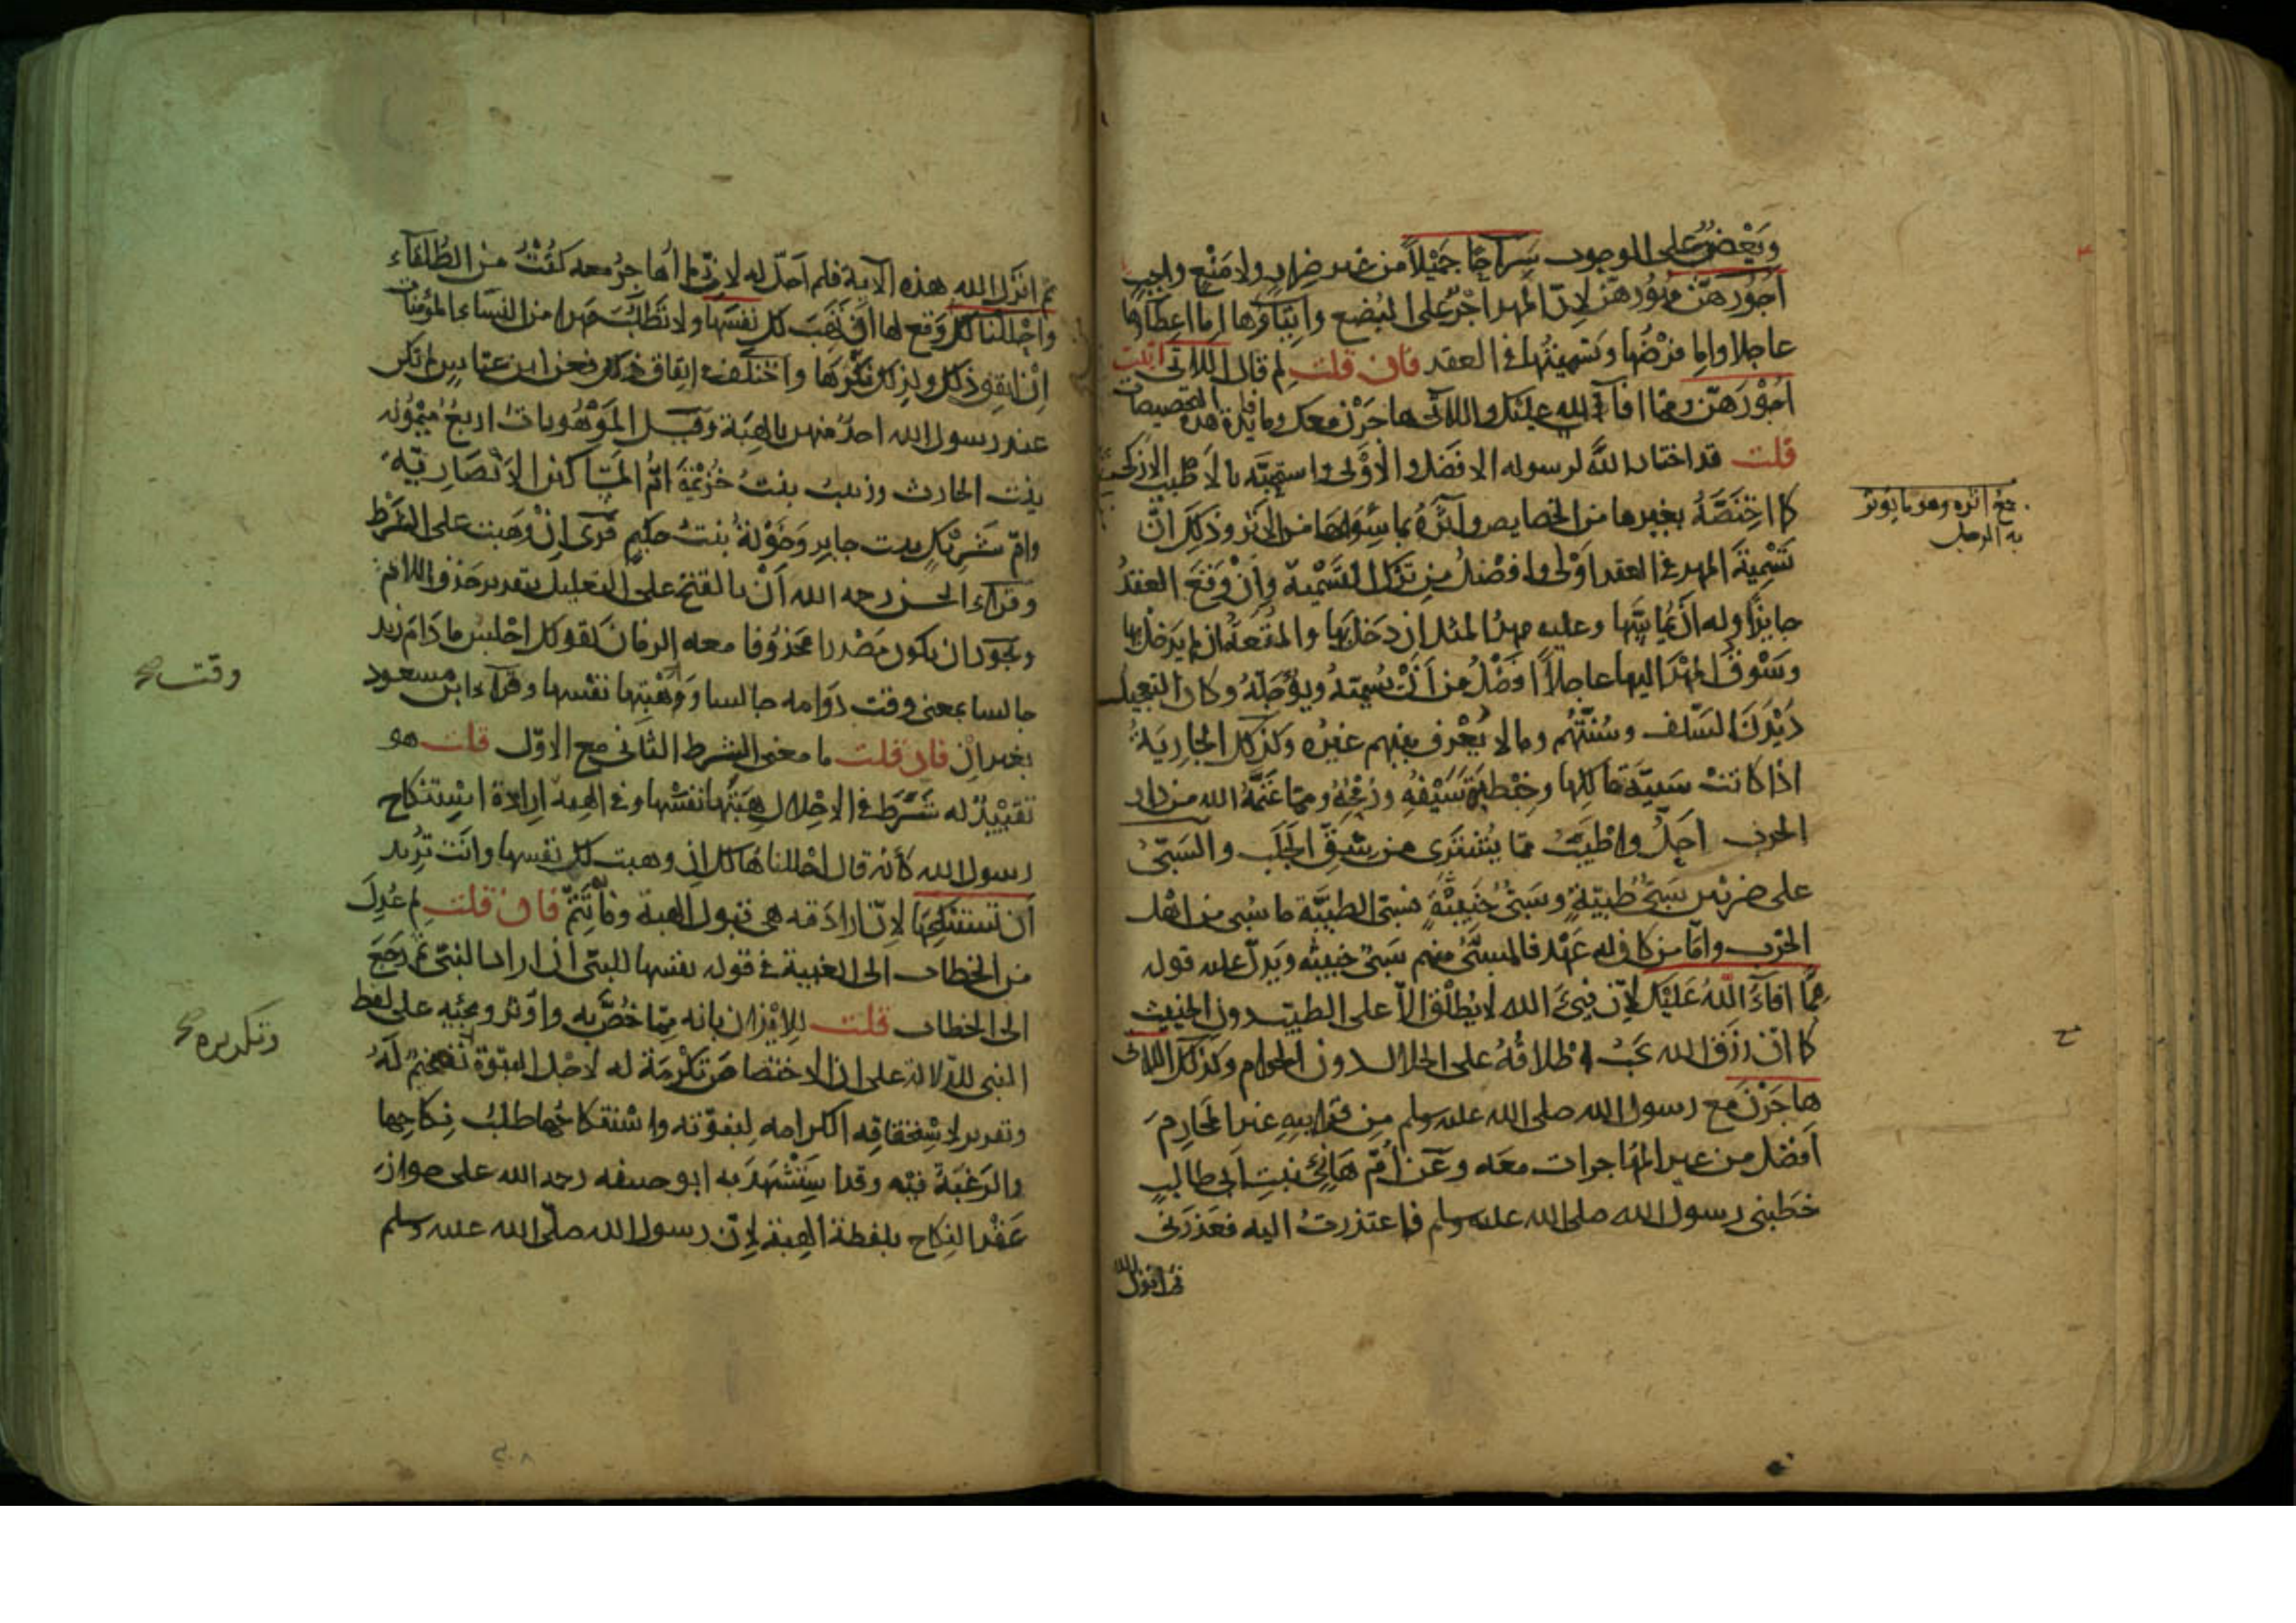 وبعض على الوجوب سراحا جميلا من غير ضرار ولا منع واجب
اجورهن مهورهن لان المهر اجر على البضع وايتاؤها اما اعطاؤها
عاجلا واما فرضها وتسميتها في العقد فان قلت لم قال اللاتي اتيت
اجورهن ومما افاء الله عليك واللاتي هاجرن معك وما فايدة هذه التخصيصات
قلت قد اختار الله لرسوله الافضل والاولى واستحبه بالاطيب الازكى
كما اختصه بغيرها من الخصايص وآثره بما سواها من الاثر وذلك ان
تسمية المهر في العقد اولى وافضل من ترك التسمية وان وقع العقد
جايزا وله ان يماسها وعليه مهر المثل ان دخل بها والمتعة ان لم يدخل بها
وسوق المهر اليها عاجلا افضل من ان يسميه ويؤجله وكان التعجيل
ديدن السلف وسنتهم وما لا يعرف بينهم غيره وكذلك الجارية
اذا كانت سبية مالكها وخطبة سيفه ورمحه ومما غنمه الله من دار
الحرب احل واطيب مما يشترى من شق الجلب والسبي
على ضربين سبي طيبة وسبي خبيثة فسبي الطيبة ما سبي من اهل
الحرب واما من كان له عهد فالمسبي منهم سبي خبيثه ويدل عليه قوله
مما افاء الله عليك لان فيء الله لا يطلق الا على الطيب دون الخبيث
كما ان رزق الله يجب اطلاقه على الحلال دون الحرام وكذلك اللاتي
هاجرن مع رسول الله صلى الله عليه وسلم من قرابيه غير المحارم
افضل من غير المهاجرات معه وعن ام هانئ بنت ابي طالب
خطبني رسول الله صلى الله عليه وسلم فاعتذرت اليه فعذرني
ثم انزل الله
جمع اثره وهو ما يؤثر
به الرجل
ثم انزل الله هذه الآية فلم احل له لاني لم اهاجر معه كنت من الطلقاء
واحللنا لك وقع لها ان تهب لك نفسها ولا تطلب مهرا من النساء المؤمنات
ان اتفق ذلك ولذلك نكرها واختلف في اتفاق ذلك فعن ابن عباس لم تكن
عند رسول الله احد منهن بالهبة وقيل الموهوبات اربع ميمونه
بنت الحارث وزينب بنت خزيمة ام المساكين الانصارية
وام شريك بنت جابر وخولة بنت حكيم قرئ ان وهبت على الشرط
وقراء الحسن رحمه الله ان بالفتح على التعليل بتقدير حذف اللام
ويجوز ان يكون مصدرا محذوفا معه الزمان كقولك اجلس ما دام زيد
جالسا بمعنى وقت دوامه جالسا ووهبتها نفسها وقراء ابن مسعود
بغير ان فان قلت ما معنى الشرط الثاني مع الاول قلت هو
تقييد له شرط في الاحلال هبتها نفسها وفي الهبه ارادة استنكاح
رسول الله كأنه قال احللناها لك ان وهبت لك نفسها وانت تريد
ان تستنكحها لان ارادته هي قبول الهبة وما به تتم فان قلت لم عدل
من الخطاب الى الغيبة في قوله نفسها للنبي ان اراد النبي ثم رجع
الى الخطاب قلت للايذان بانه مما خص به واوثر ومجئيه على لفظ
النبي للدلالة على ان الاختصاص تكرمة له لاجل النبوة تفخيم له
وتقرير لاستحقاقه الكرامه لنبوته واستنكاحها طلب نكاحها
والرغبة فيه وقد استشهد به ابو حنيفه رحمه الله على جواز
عقد النكاح بلفظة الهبة لان رسول الله صلى الله عليه وسلم
وقت صح
وتكريره صح